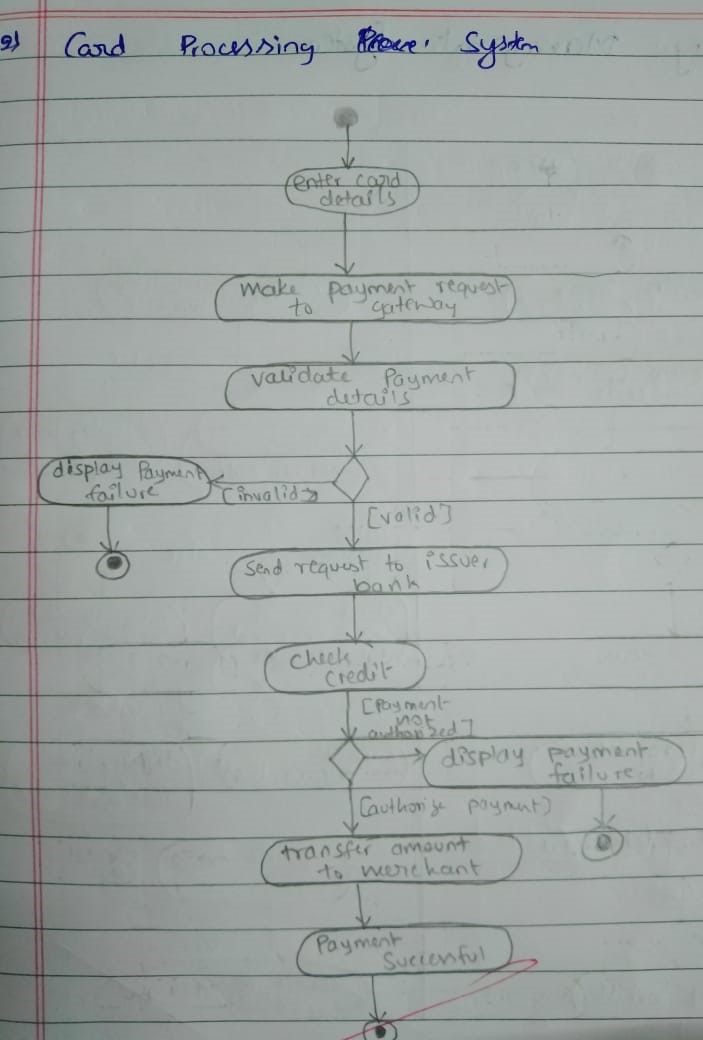 2) Card Processing System
enter card
details
make payment request
to gateway
validate Payment
details
display Payment
failure
[invalid]
[valid]
Send request to issuer
bank
Check
credit
[Payment
not
authorized]
display payment
failure
[authorize payment]
transfer amount
to merchant
Payment
Successful